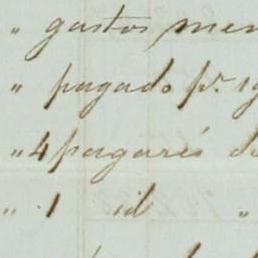 " gastos men
" pagado pr. ig
" 4 pagarés d
" 1 id "